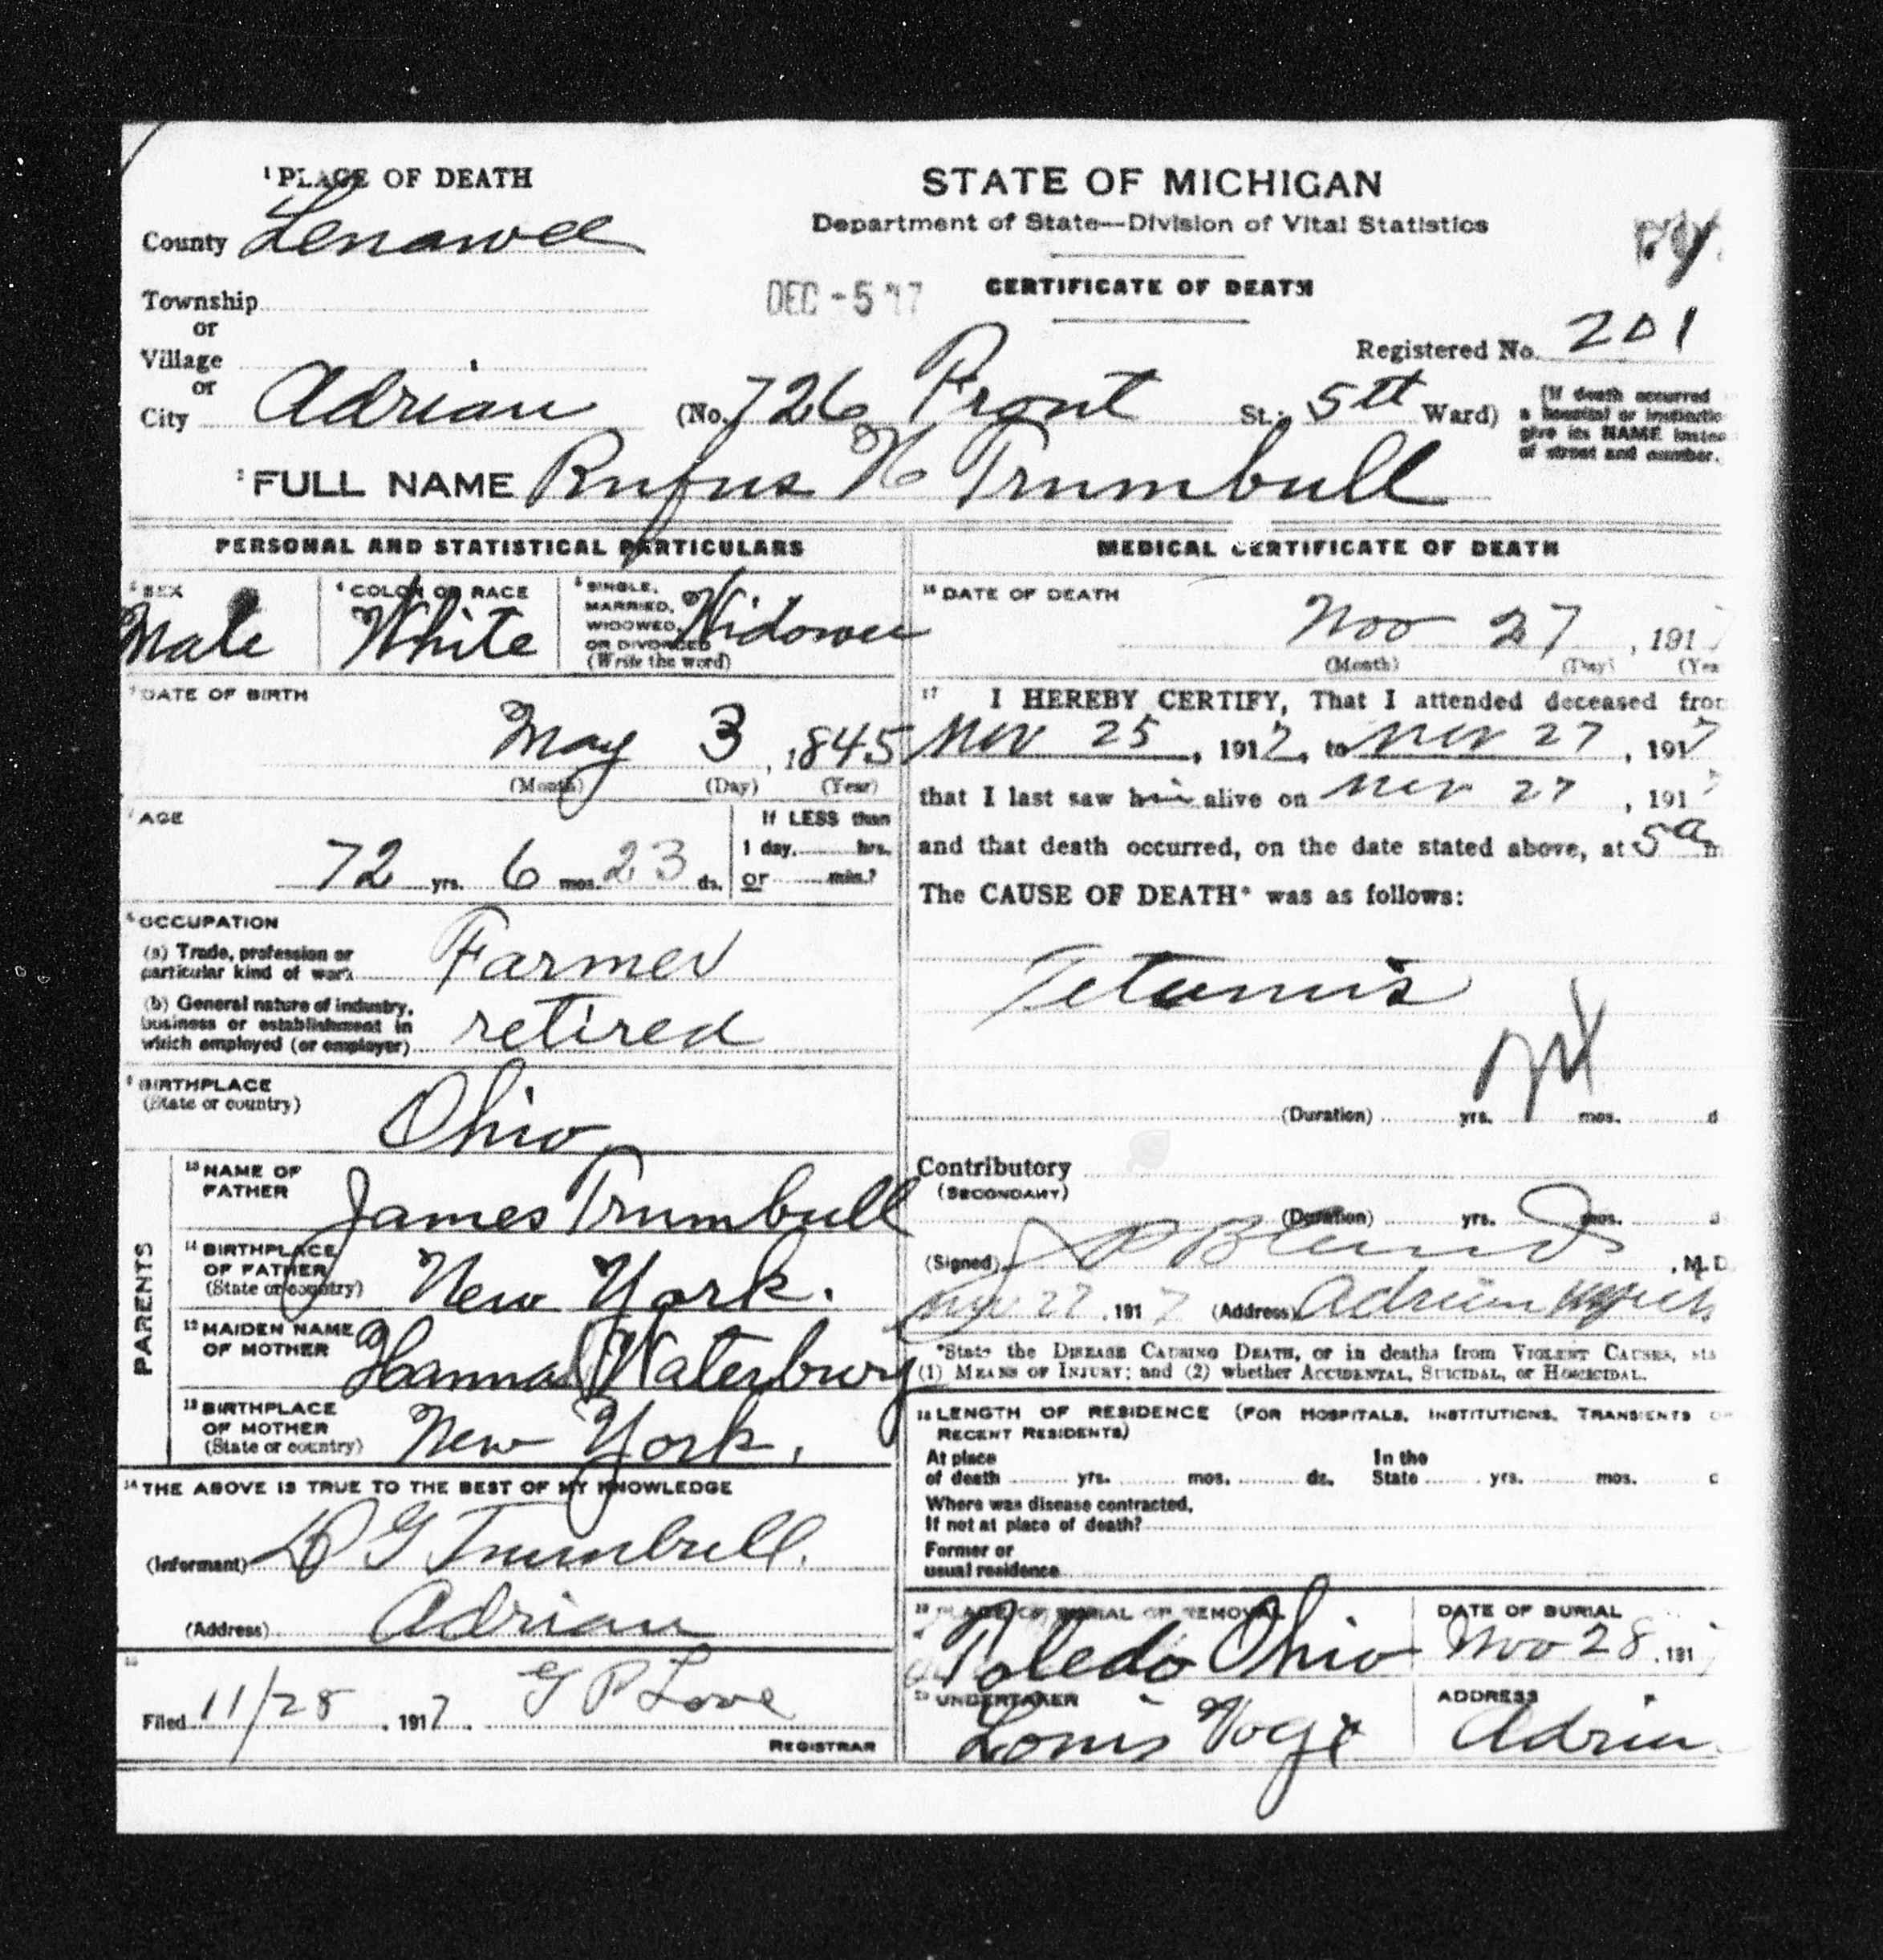 1 PLACE OF DEATH
County Lenawee
Township
or
Village
or
City Adrian
STATE OF MICHIGAN
Department of State—Division of Vital Statistics
DEC -5 '17
CERTIFICATE OF DEATH
Registered No. 201
(No. 726 Front St.; 5th Ward)
(If death occurred
a hospital or institutio
give its NAME instea
of street and number.
2 FULL NAME Rufus H Trumbull
PERSONAL AND STATISTICAL PARTICULARS
3 SEX
Male
4 COLOR OR RACE
White
5 SINGLE,
MARRIED,
WIDOWED,
OR DIVORCED
(Write the word)
Widower
6 DATE OF BIRTH
May 3, 1845
(Month) (Day) (Year)
7 AGE
72 yrs. 6 mos. 23 ds.
If LESS than
1 day, hrs.
or min.?
8 OCCUPATION
(a) Trade, profession or
particular kind of work Farmer
(b) General nature of industry,
business or establishment in
which employed (or employer) retired
9 BIRTHPLACE
(State or country)
Ohio
PARENTS
10 NAME OF
FATHER
James Trumbull
11 BIRTHPLACE
OF FATHER
(State or country)
New York.
12 MAIDEN NAME
OF MOTHER
Hannah Waterbury
13 BIRTHPLACE
OF MOTHER
(State or country)
New York.
14 THE ABOVE IS TRUE TO THE BEST OF MY KNOWLEDGE
(Informant) G Trumbull.
(Address) Adrian
15
Filed 11/28, 1917 G P Love
REGISTRAR
MEDICAL CERTIFICATE OF DEATH
16 DATE OF DEATH
Nov 27, 1917
(Month) (Day) (Yea
17 I HEREBY CERTIFY, That I attended deceased from
Nov 25, 1917, to Nov 27, 1917
that I last saw him alive on Nov 27, 191
and that death occurred, on the date stated above, at 5 a m
The CAUSE OF DEATH* was as follows:
Tetanus
(Duration) yrs. mos. d
Contributory
(SECONDARY)
(Duration) yrs. mos. d
(Signed) , M. D
Nov 27, 1917 (Address) Adrian Mich
*State the DISEASE CAUSING DEATH, or in deaths from VIOLENT CAUSES, sta
(1) MEANS OF INJURY; and (2) whether ACCIDENTAL, SUICIDAL, or HOMICIDAL.
18 LENGTH OF RESIDENCE (FOR HOSPITALS, INSTITUTIONS, TRANSIENTS O
RECENT RESIDENTS)
At place
of death yrs. mos. ds.
In the
State yrs. mos.
Where was disease contracted,
If not at place of death?
Former or
usual residence
19 PLACE OF BURIAL OR REMOVAL
Toledo Ohio
DATE OF BURIAL
Nov 28, 191
20 UNDERTAKER
Louis Vogt
ADDRESS
Adrian